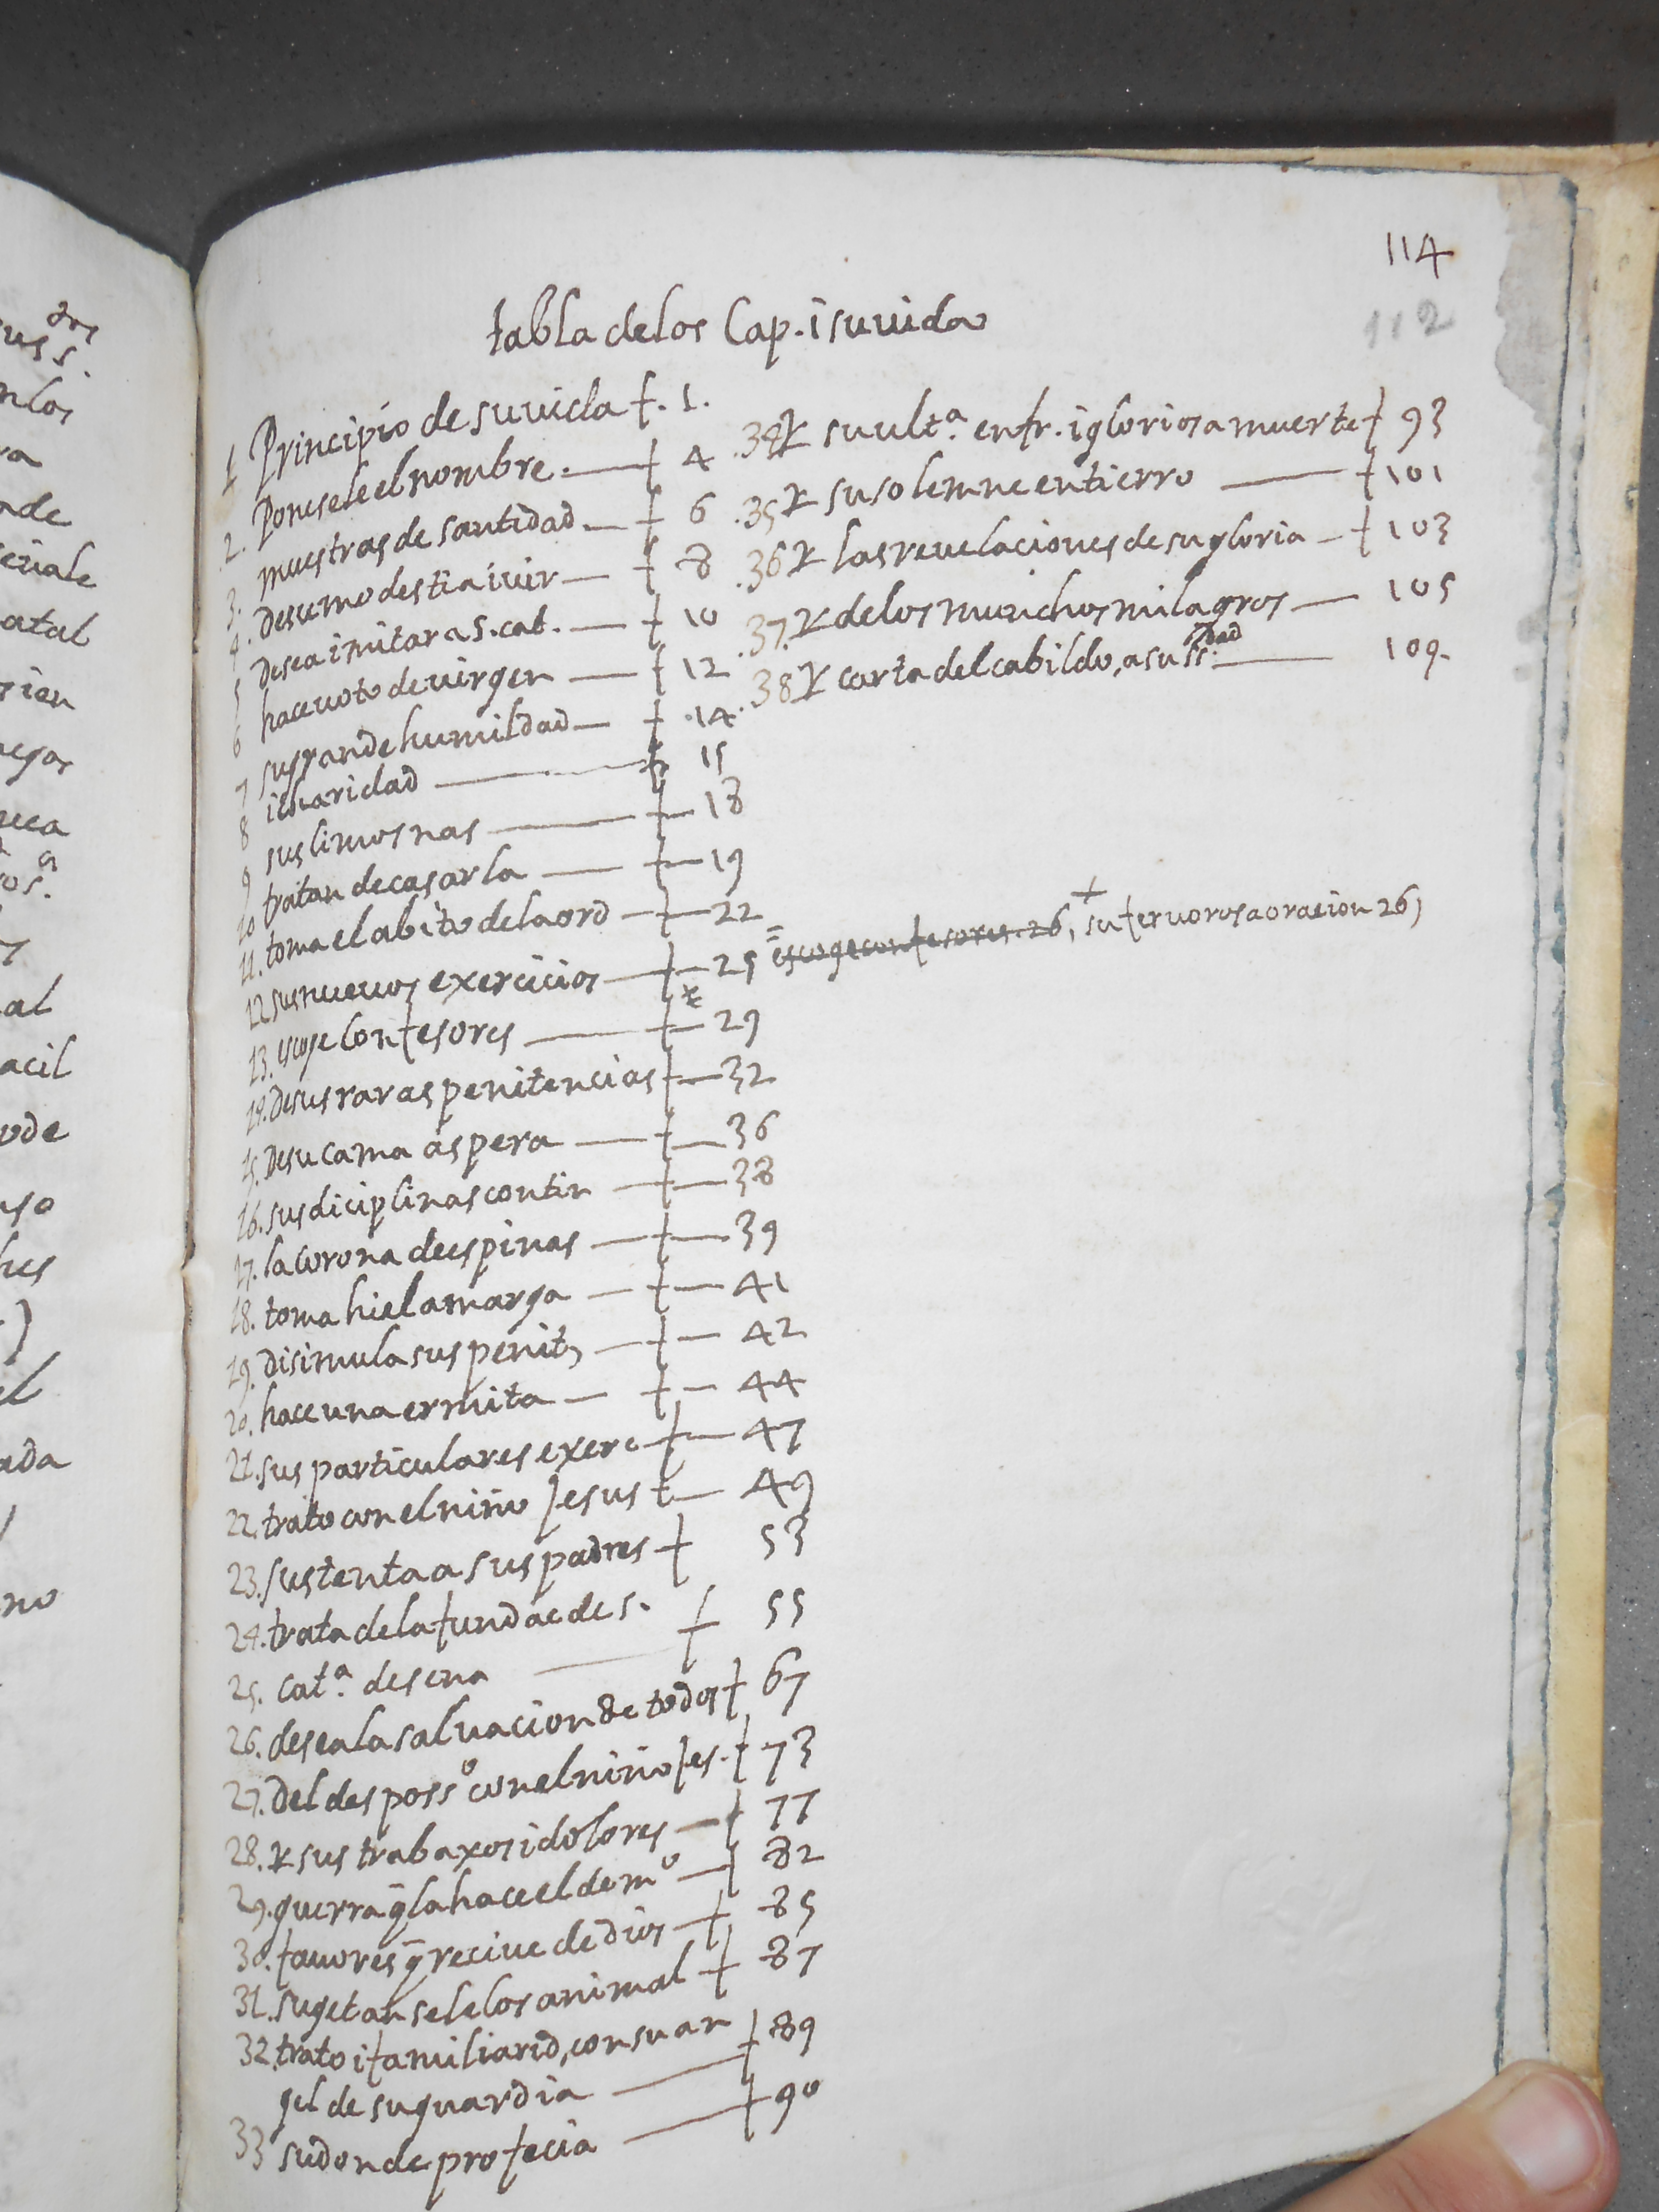 114
112
tabla delos Cap. i su uida
1 Principio de su uida f. 1.
2. Ponesele el nombre. — f 4
3. muestras de santidad — f 6
4. De su modestia i uir — f 8
5 Desea imitar a S. cat. — f 10
6 hace uoto de uirgen — f 12
7 su grande humildad — f 14.
8 i charidad — f 15
9 sus limosnas — f 18
10 tratan de casarla — f 19
11. toma el abito de la ord — f 22
12 sus nueuos exercicios — f 25 = escoge confesores. 26, su feruorosa oracion 26)
13. escoge confesores — f 29
14. De sus raras penitencias f 32
15. De su cama aspera — f 36
16. sus diciplinas contin — f 38
17. la corona de espinas — f 39
18. toma hiel amarga — f 41
19. disimula sus penit, — f 42
20. hace una ermita — f 44
21. sus particulares exerc f 47
22. trato con el niño Jesus f 49
23. sustenta a sus padres f 53
24. trata de la fundac de s. f 55
25. Catª. de sena — f
26. desea la saluacion de todos f 67
27. Del despossº con el niño Jes. f 73
28. sus trabaxos i dolores — f 77
29. guerra q̃ la hace el demº — f 82
30. fauores q̃ reciue de Dios — f 85
31. sugetanse le los animal f 87
32. trato i familiarid, con su an
gel de su guardia — f 89
33 su don de profecia — f 90
.34 su ultª. enfr. i gloriosa muerte f 93
.35 su solemne entierro — f 101
.36 las reuelaciones de su gloria — f 103
.37. de los munchos milagros — 105
.38 carta del cabildo, a su ss.dad — 109.